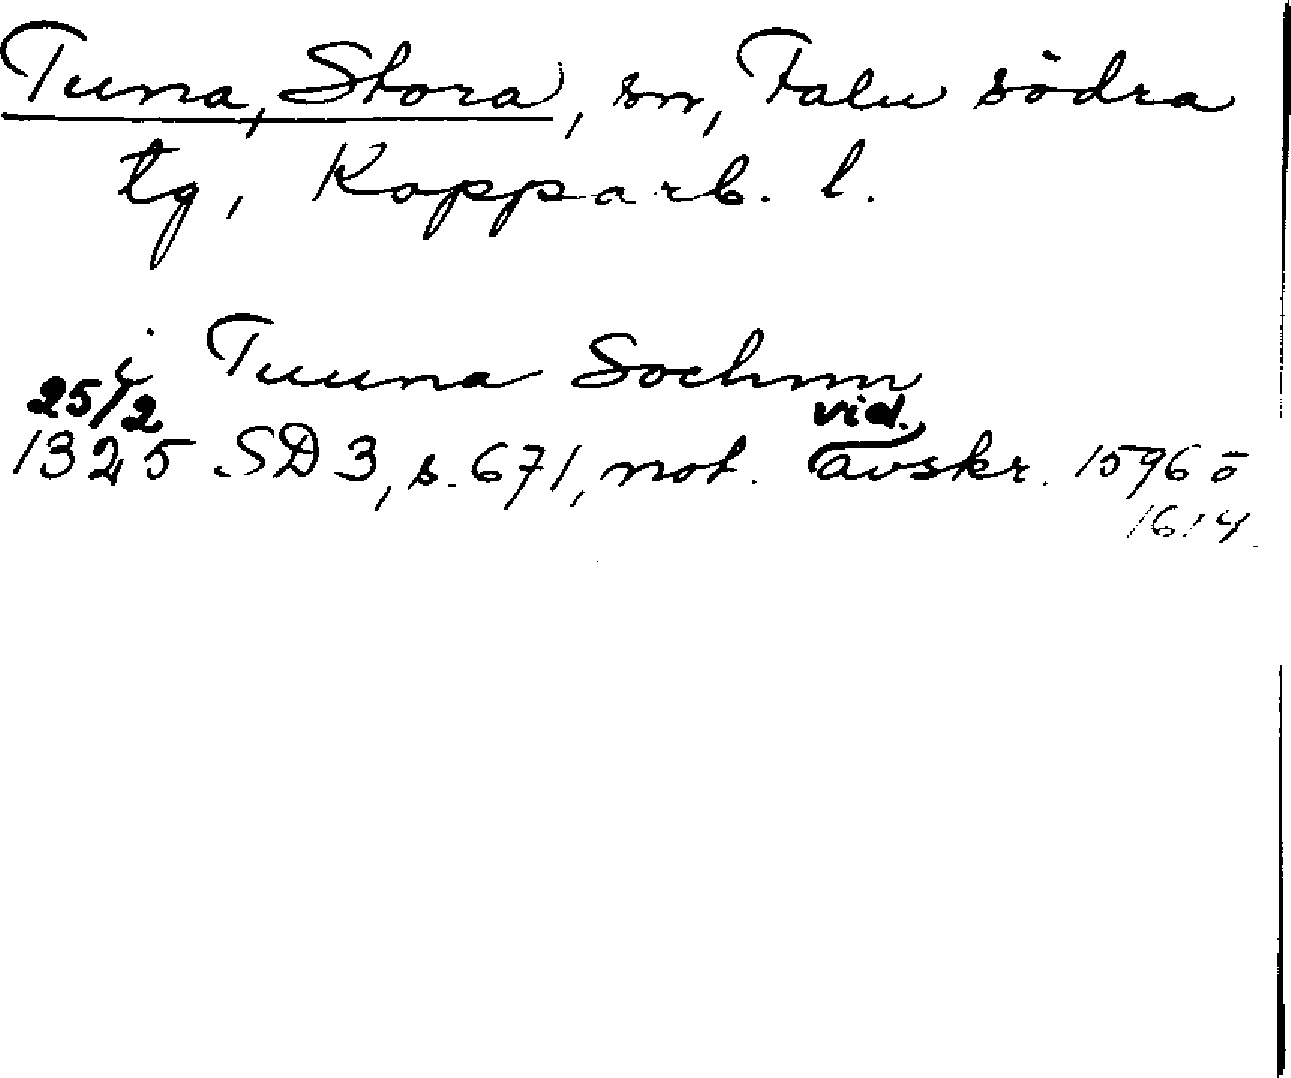 Tuna, Stora, sn, Falu södra
tg, Kopparb. l.
i Tuuna Sochnn
25/2 vid.
1325 SD 3, s. 671, not. avskr. 1596 o
1614.